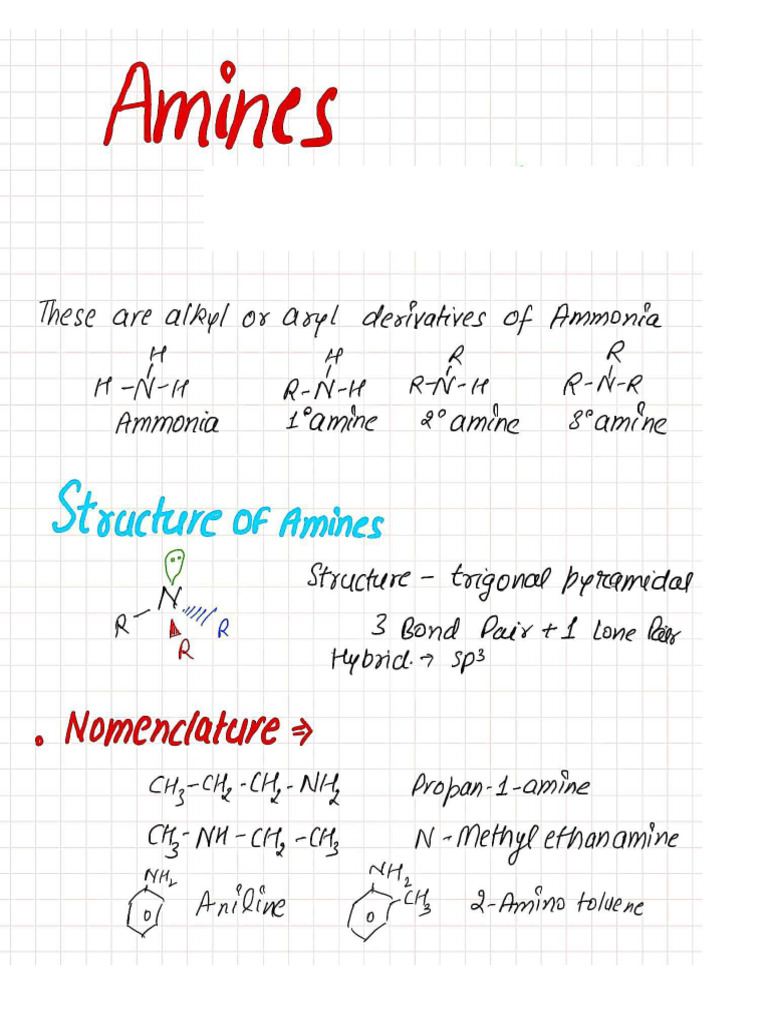 Amines
These are alkyl or aryl derivatives of Ammonia
H H R R
H-N-H R-N-H R-N-H R-N-R
Ammonia 1° amine 2° amine 3° amine
Structure OF Amines
N
R R
R
Structure - trigonal pyramidal
3 Bond Pair + 1 Lone Pair
Hybrid. → sp³
. Nomenclature ⇒
CH₃-CH₂-CH₂-NH₂ Propan-1-amine
CH₃-NH-CH₂-CH₃ N-Methyl ethanamine
NH₂ Aniline
NH₂ CH₃ 2-Amino toluene